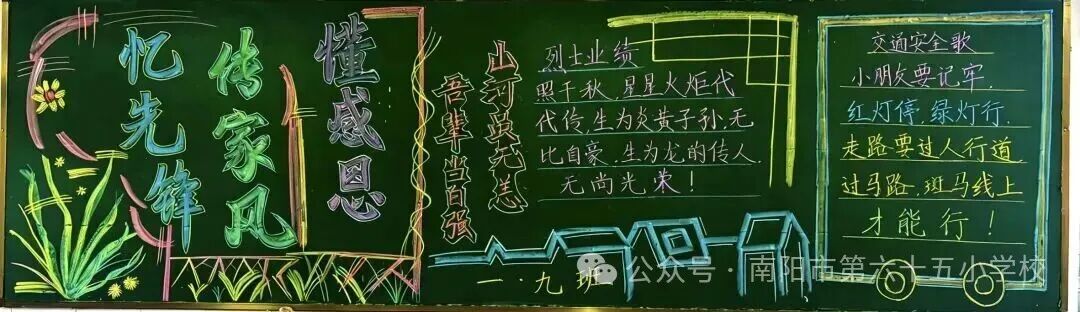 忆先锋
传家风
懂感恩
山河虽无恙
吾辈当自强
烈士业绩
照千秋,星星火炬代
代传,生为炎黄子孙,无
比自豪,生为龙的传人,
无尚光荣!
交通安全歌
小朋友要记牢,
红灯停,绿灯行,
走路要过人行道,
过马路,斑马线上
才能行!
一·九班
公众号·南阳市第六十五小学校